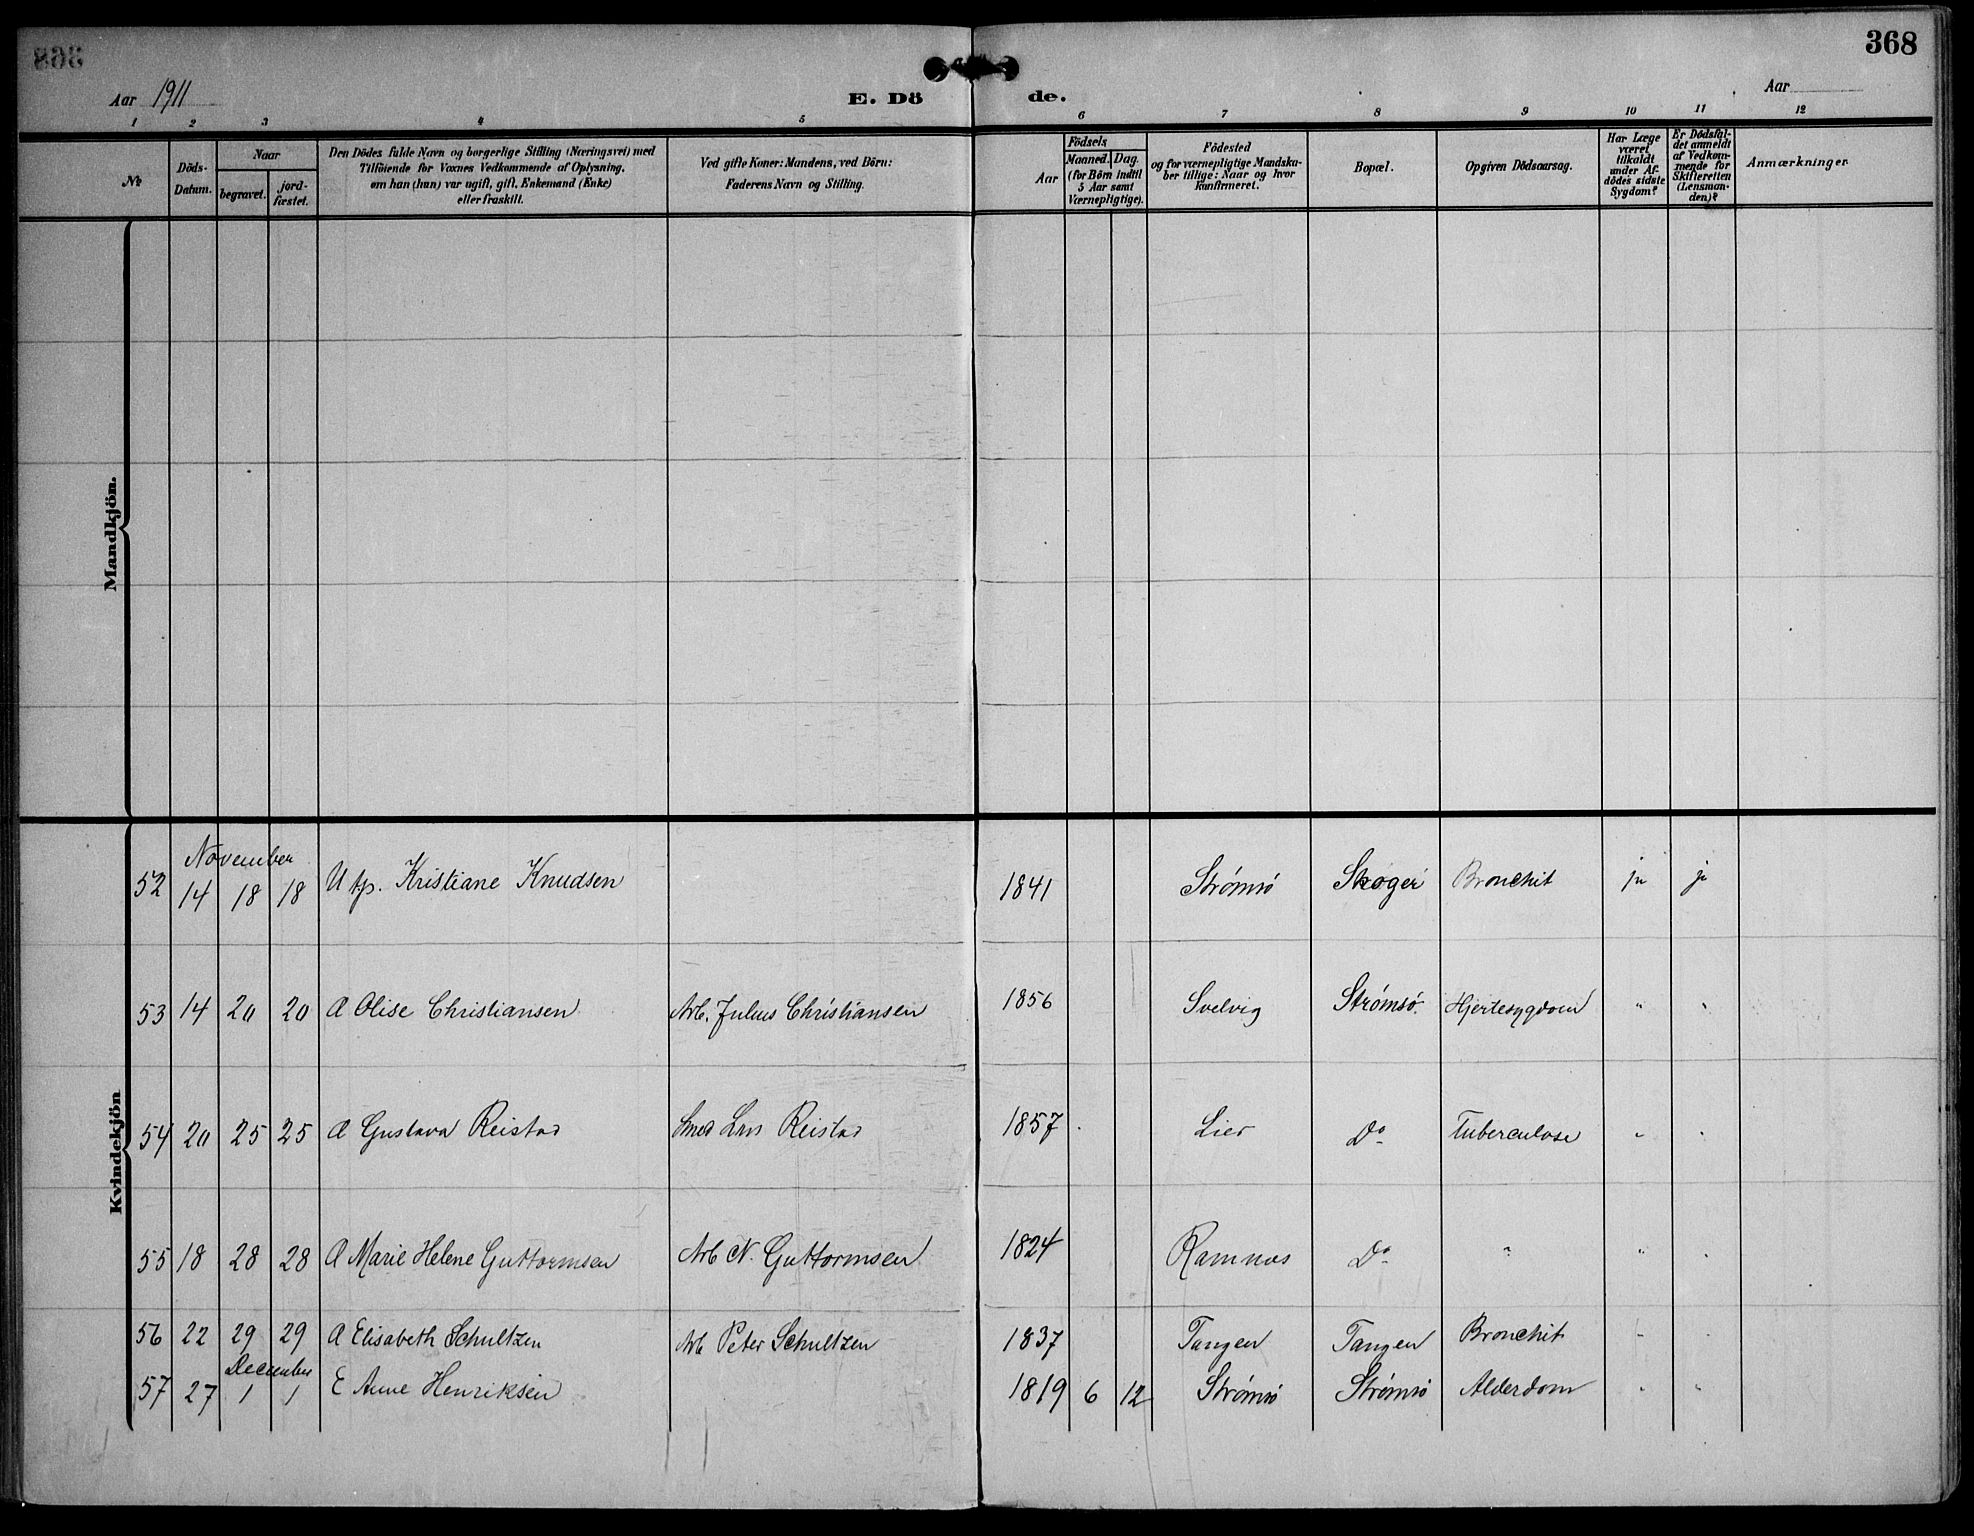 368
Aar 1911
E. Dö de.
Aar
1 2 3 4 5 6 7 8 9 10 11 12
№
Döds-Datum.
Naar
begravet.
jord-fæstet.
Den Dödes fulde Navn og borgerlige Stilling (Næringsvei) med
Tilföiende for Voxnes Vedkommende af Oplysning,
om han (hun) var ugift, gift, Enkemand (Enke)
eller fraskilt.
Ved gifte Koner: Mandens, ved Börn:
Faderens Navn og Stilling.
Födsels
Aar
Maaned.
Dag.
(for Börn indtil
5 Aar samt
Værnepligtige).
Födested
og for værnepligtige Mandska-
ber tillige: Naar og hvor
konfirmeret.
Bopæl.
Opgiven Dödsaarsag.
Har Læge
været
tilkaldt
under Af-
dödes sidste
Sygdom?
Er Dödsfal-
det anmeldt
af Vedkom-
mende for
Skifteretten
(Lensman-
den)?
Anmærkninger
Mandkjön.
Kvindekjön
November
52 14 18 18 U tp. Kristiane Knudsen 1841 Strømsø Skoger Bronchit ja ja
53 14 20 20 A Olise Christiansen Arb. Julius Christiansen 1856 Svelvig Strømsø. Hjertesygdom " "
54 20 25 25 A Gustava Reistad Smed Lars Reistad 1857 Lier Do Tuberculose " "
55 18 28 28 A Marie Helene Guttormsen Arb N. Guttormsen 1824 Ramnes Do " " "
56 22 29 29 A Elisabeth Schultzen Arb Peter Schultzen 1837 Tangen Tangen Bronchit " "
December
57 27 1 1 E Anne Henriksen 1819 6 12 Strømsø Strømsø Alderdom " "